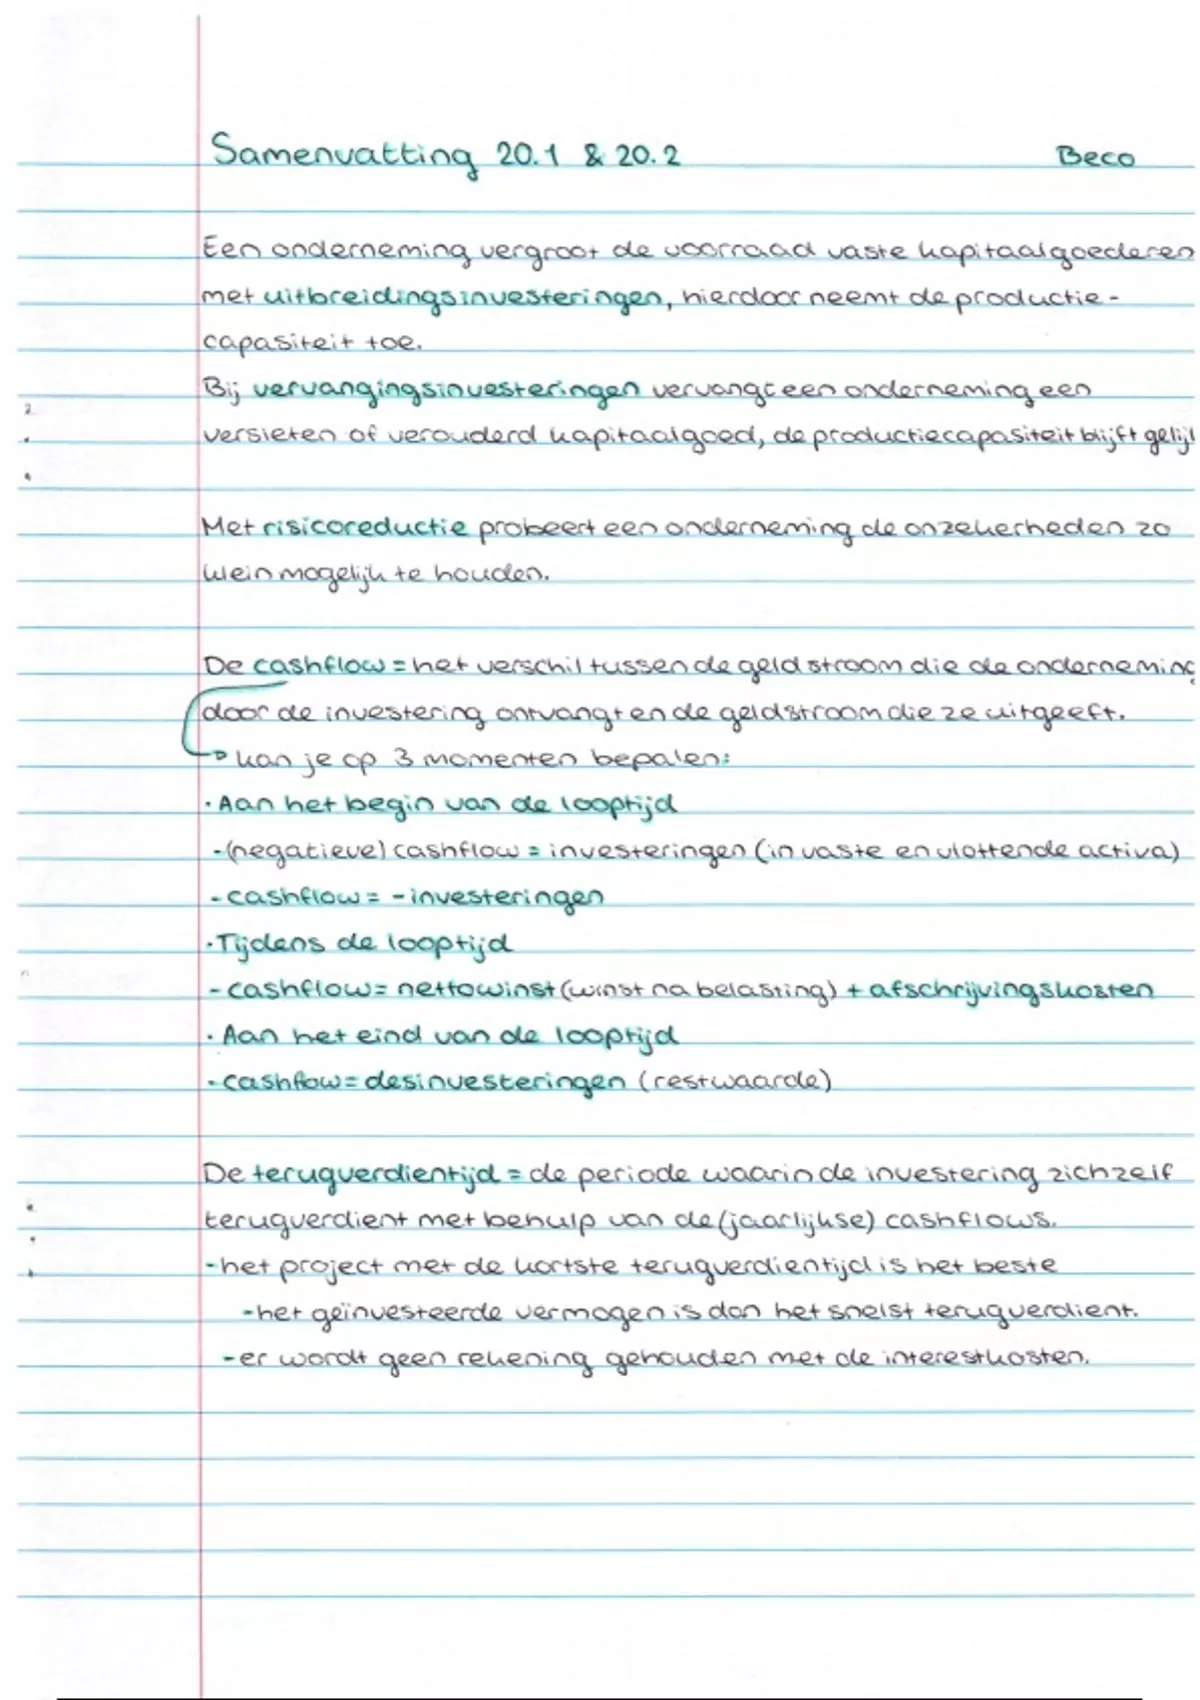 Samenvatting 20.1 & 20.2 Beco
Een onderneming vergroot de voorraad vaste kapitaalgoederen
met uitbreidingsinvesteringen, hierdoor neemt de productie-
capasiteit toe.
Bij vervangingsinvesteringen vervangt een onderneming een
versleten of verouderd kapitaalgoed, de productiecapasiteit blijft gelijk
Met risicoreductie probeert een onderneming de onzekerheden zo
klein mogelijk te houden.
De cashflow = het verschil tussen de geldstroom die de onderneming
door de investering ontvangt en de geldstroom die ze uitgeeft.
→ kan je op 3 momenten bepalen:
· Aan het begin van de looptijd
- (negatieve) cashflow = investeringen (in vaste en vlottende activa)
- cashflow = - investeringen
· Tijdens de looptijd
- cashflow = nettowinst (winst na belasting) + afschrijvingskosten
· Aan het eind van de looptijd
- cashflow = desinvesteringen (restwaarde)
De terugverdientijd = de periode waarin de investering zichzelf
terugverdient met behulp van de (jaarlijkse) cashflows.
- het project met de kortste terugverdientijd is het beste
- het geïnvesteerde vermogen is dan het snelst terugverdient.
- er wordt geen rekening gehouden met de interestkosten.